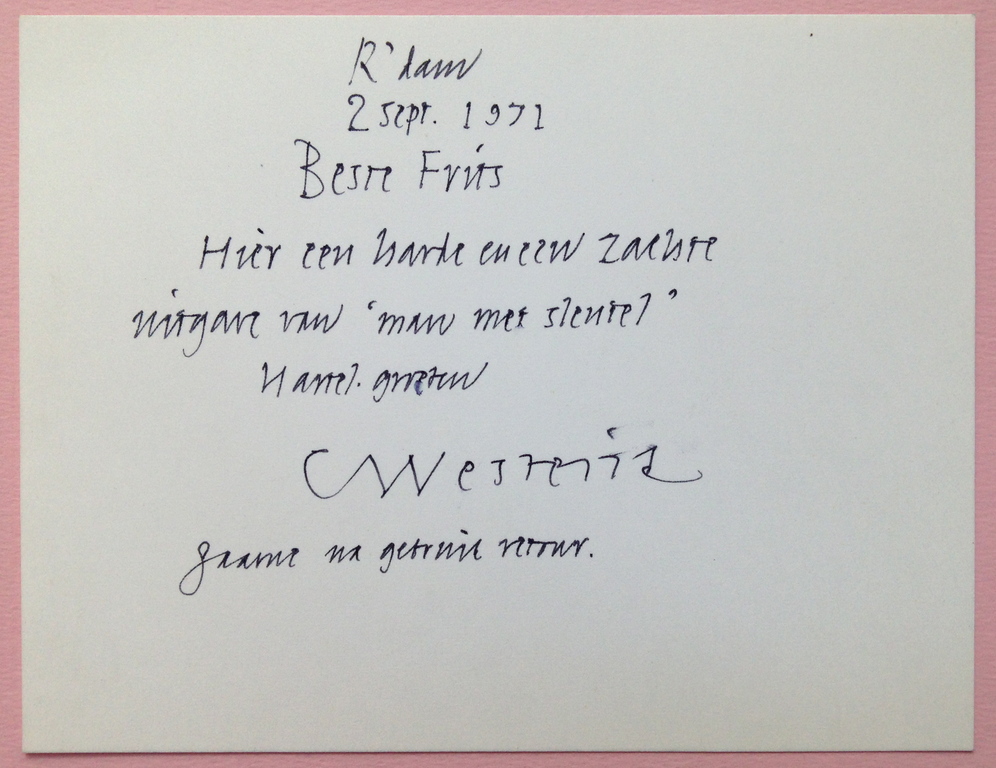 R'dam
2 sept. 1971
Beste Frits
Hier een harde en een zachte
uitgave van 'man met sleutel'
Hartel. groeten
CWesterik
gaarne na gebruik retour.